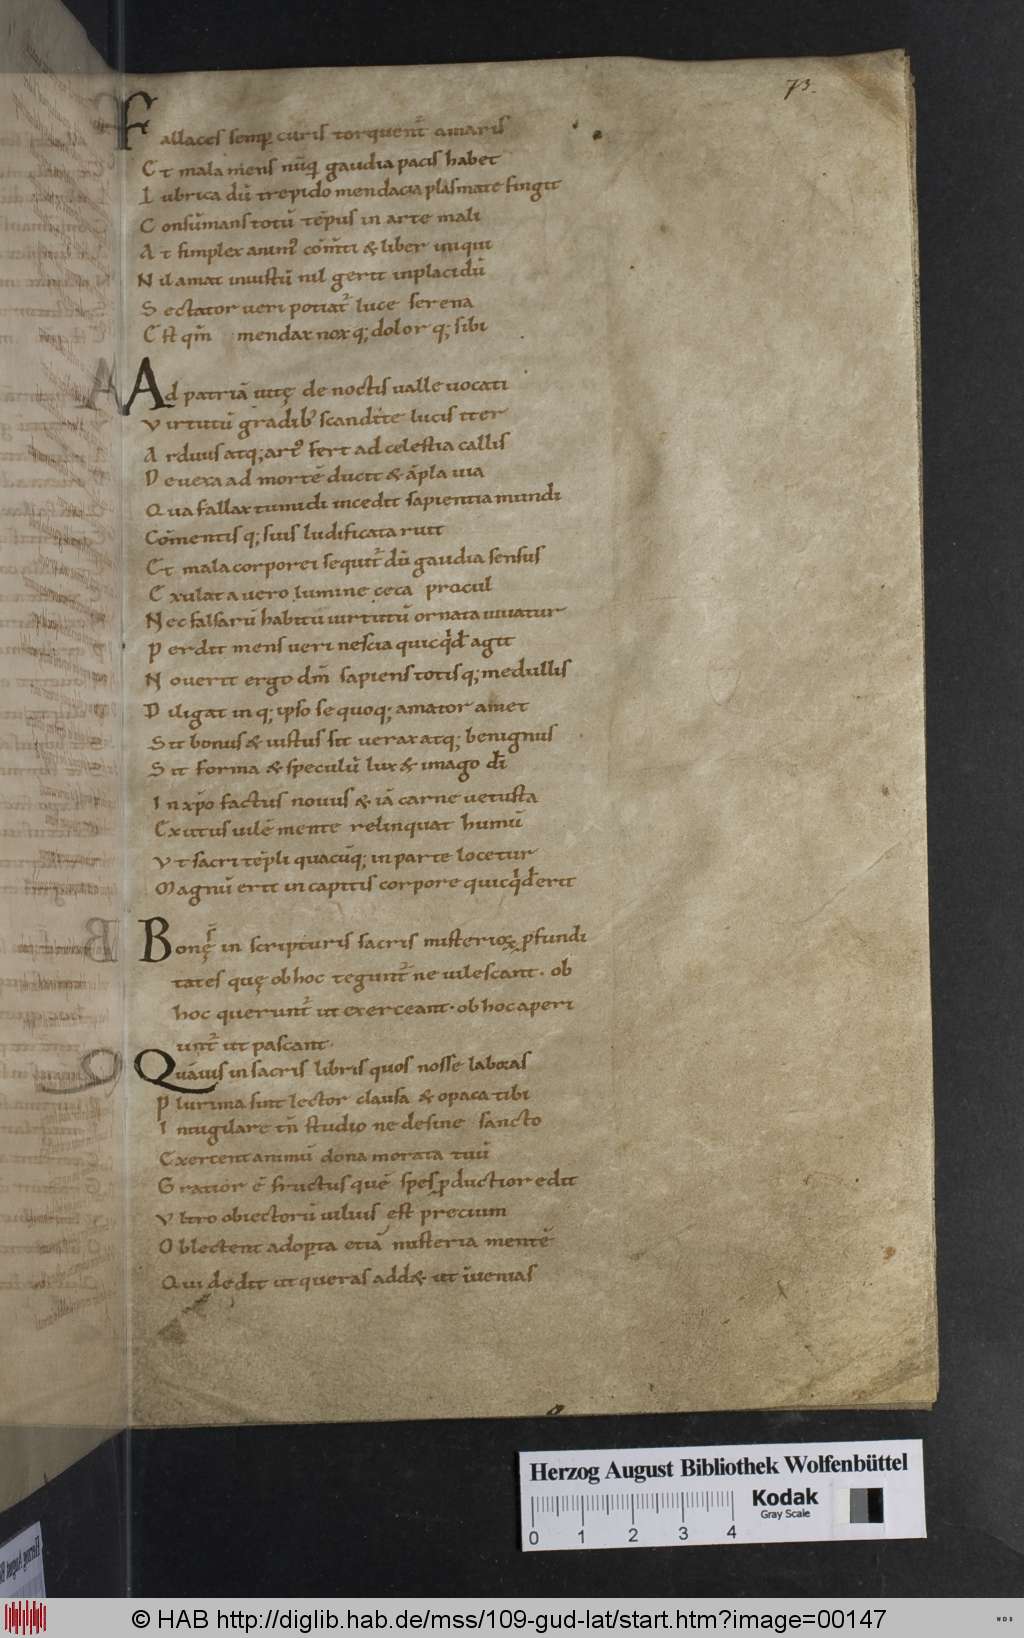 73.
Fallaces semꝑ curis torquent᷑ amaris
Et mala mens nūq̄ gaudia pacis habet
Lubrica dū trepido mendacia plasmate fingit
Consūmans totū tēpus in arte mali
At simplex animꝰ cōm̄ti & liber iniqui
Nil amat iniustū nil gerit inplacidū
Sectator ueri potiat᷑ luce serena
Est qm̄ mendax nox q; dolor q; sibi
Ad patriā uitę de noctis ualle uocati
Virtutū gradibꝰ scandite lucis iter
Arduus atq; artꝰ fert ad celestia callis
Deuexa ad mortē ducit & āpla uia
Qua fallax tumidi incedit sapientia mundi
Cōmentis q; suis ludificata ruit
Et mala corporei sequit᷑ dū gaudia sensus
Exulat a uero lumine ceca procul
Nec falsarū habitū uirtutū ornata uiuatur
Perdit mens ueri nescia quicqđ agit
Nouerit ergo dm̄ sapiens totis q; medullis
Diligat in q; ipso se quoq; amator amet
Sit bonus & iustus sit uerax atq; benignus
Sit forma & speculū lux & imago dī
In xp̄o factus nouus & iā carne uetusta
Exutus uilē mente relinquat humū
Vt sacri tēpli quacūq; in parte locetur
Magnū erit in capitis corpore quicqđ erit
Bonę s̄ in scripturis sacris misterioꝝ ꝓfundi
tates quę ob hoc tegunt᷑ ne uilescant. ob
hoc querunt᷑ ut exerceant. ob hoc aperi
unt᷑ ut pascant.
Quāuis in sacris libris quos nosse laboras
Plurima sint lector clausa & opaca tibi
Inuigilare tn̄ studio ne desine sancto
Exercent animū dona morata tuū
Gratior ē fructus quē spes ꝓductior edit
Vltro obiectorū uilius est p̄cium
Oblectent adoꝑta etiā misteria mentē
Qui dedit ut queras add& ut īuenias
Herzog August Bibliothek Wolfenbüttel
0 1 2 3 4
Kodak
Gray Scale
© HAB http://diglib.hab.de/mss/109-gud-lat/start.htm?image=00147